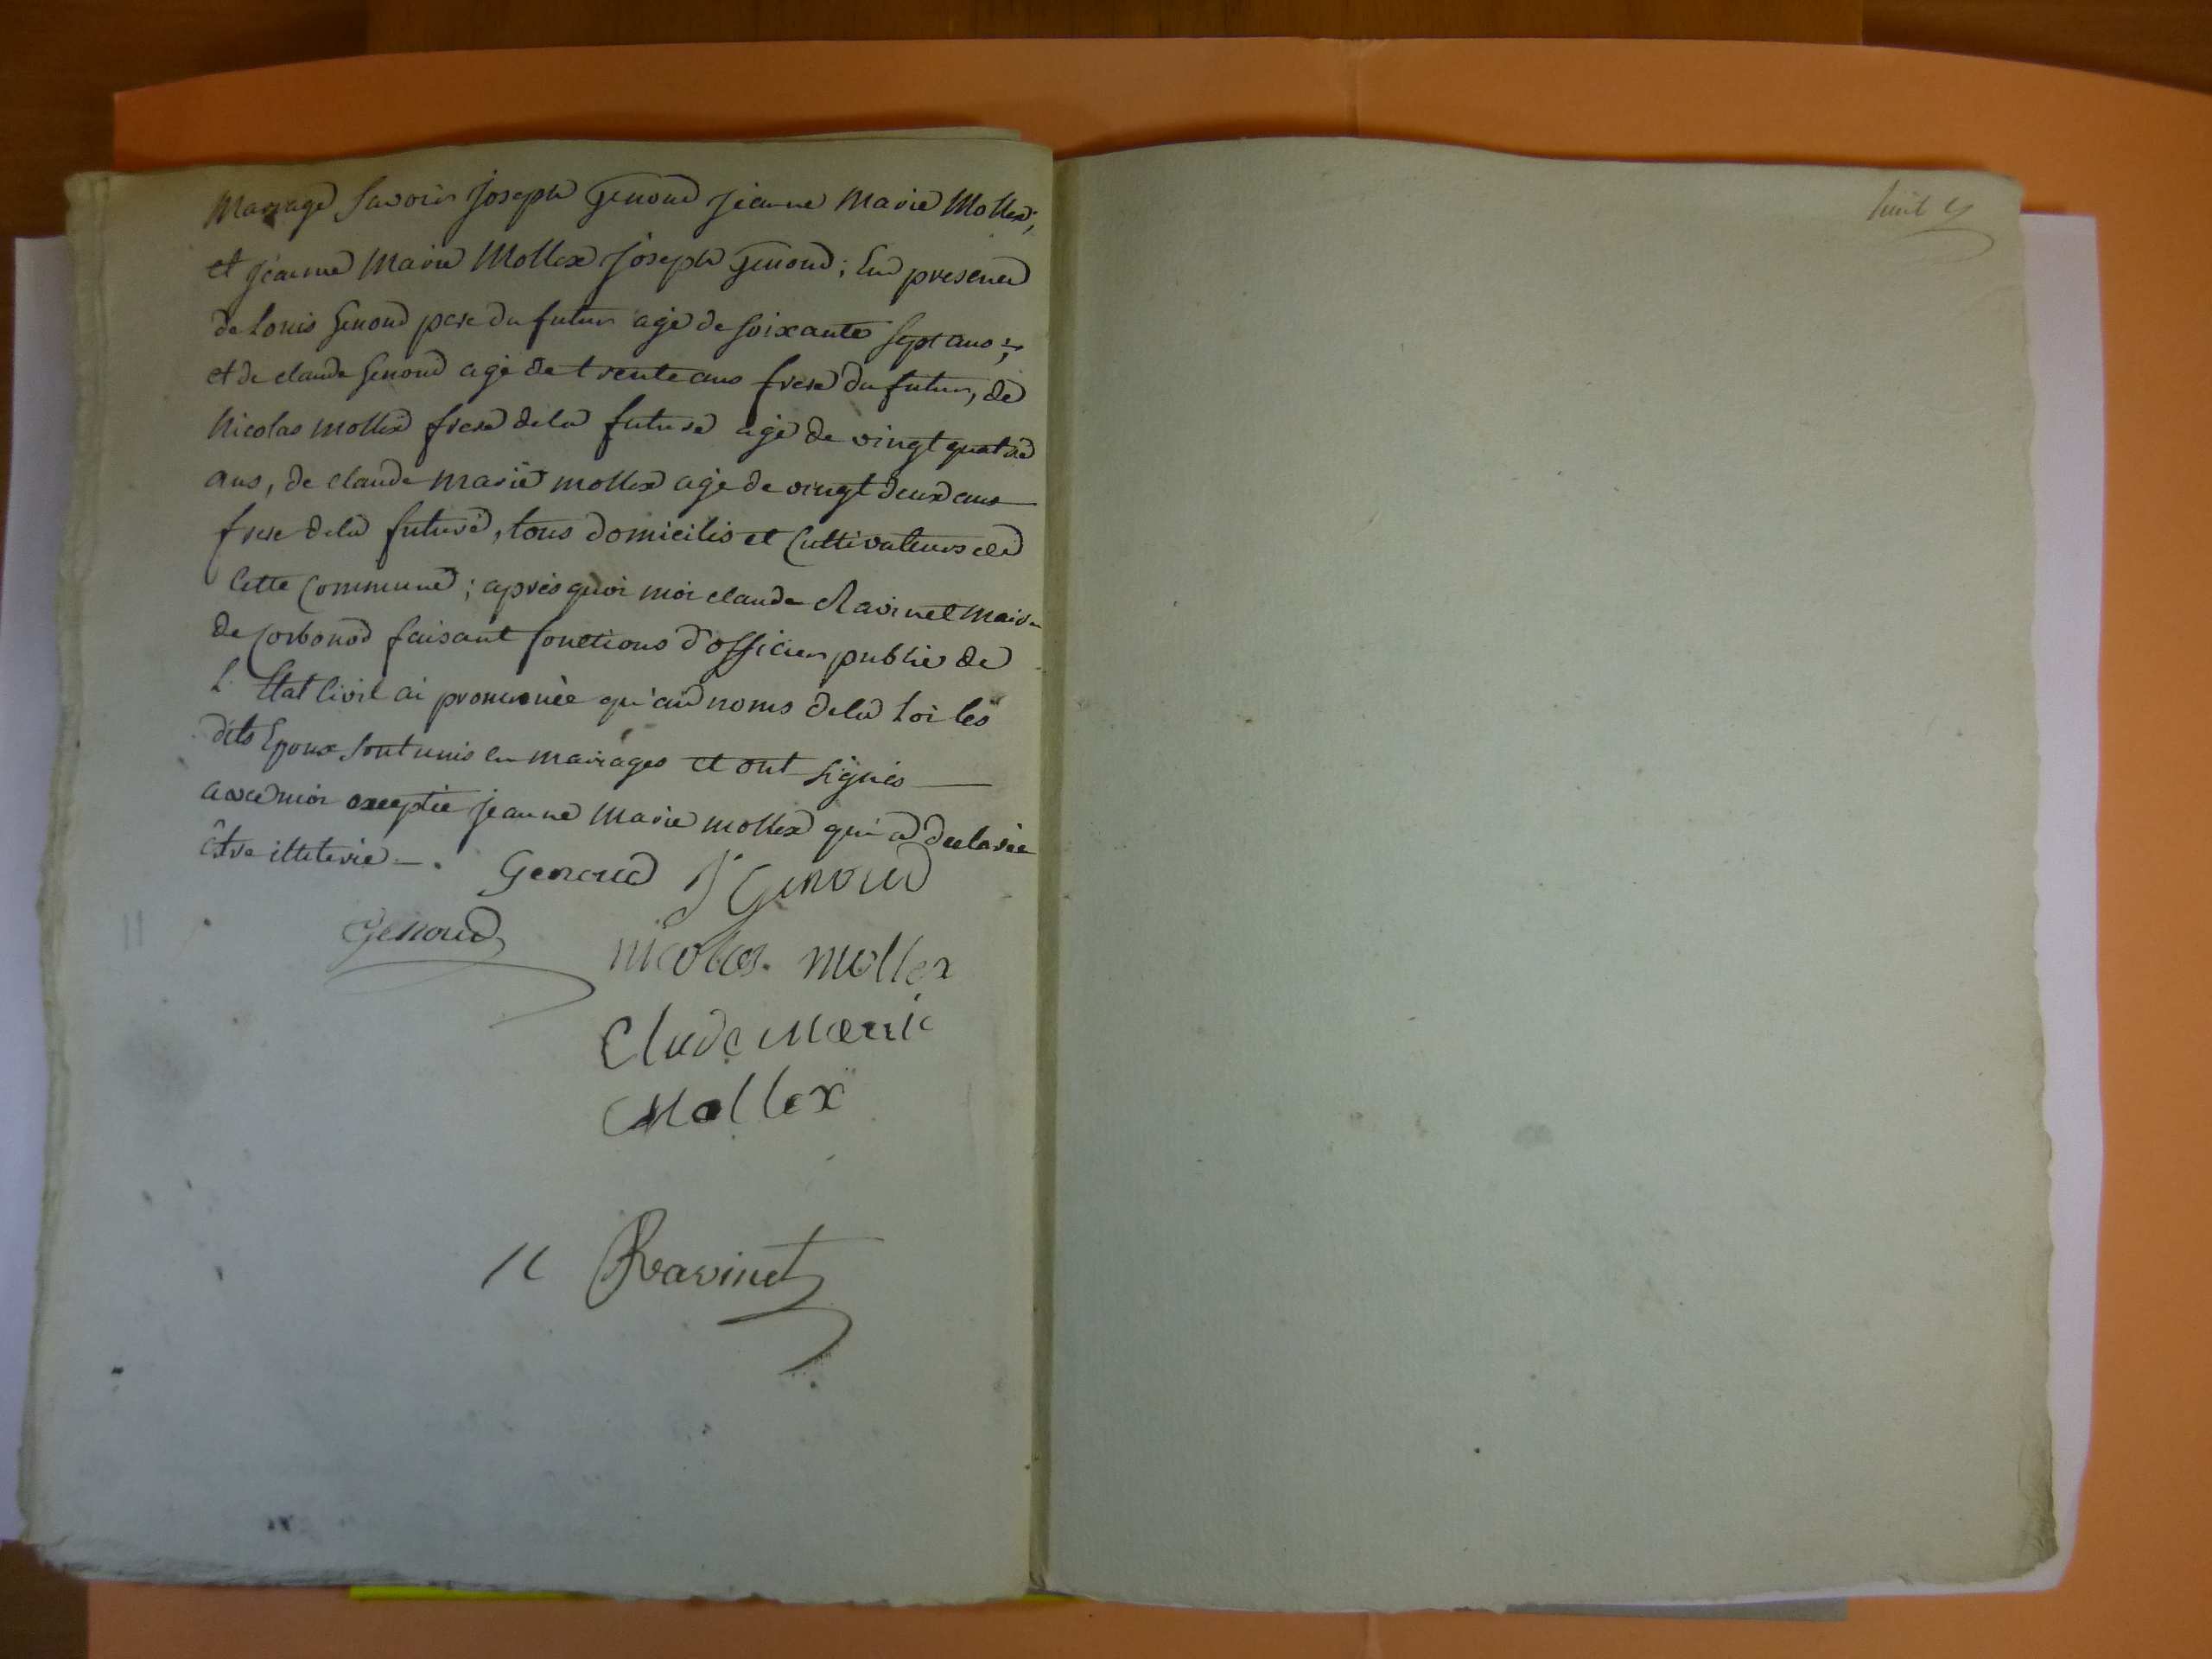 Mariage savoir joseph Genoud jeanne Marie Mollex;
et jéanne Marie Mollex joseph Genoud; En presence
de Louis Genoud pere du futur agé de soixante sept ans;
et de claude Genoud agé de trente ans frere du futur, de
Nicolas mollex frere de la future agé de vingt quatre
ans, de claude marie mollex agé de vingt deux ans
frere de la future, tous domiciliés et Cultivateurs de
Cette Commune; après quoi moi claude Ravinet maire
de Corbonod faisant fonctions d'officier public de
L'Etat Civil ai prononcée qu'au noms de la Loi les
dits Epoux sont unis en mariages et ont signés
avec moi exceptée jeanne Marie mollex qui a declarée
être illiterée.
Genoud J Genoud
Genoud
nicolas mollex
Clude Marie
Mollex
Ravinet
huit